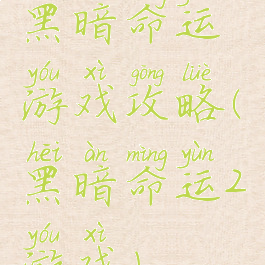 黑暗命运
yóu xì gōng lüè
游戏攻略(
hēi àn mìng yùn
黑暗命运2
yóu xì
游戏)